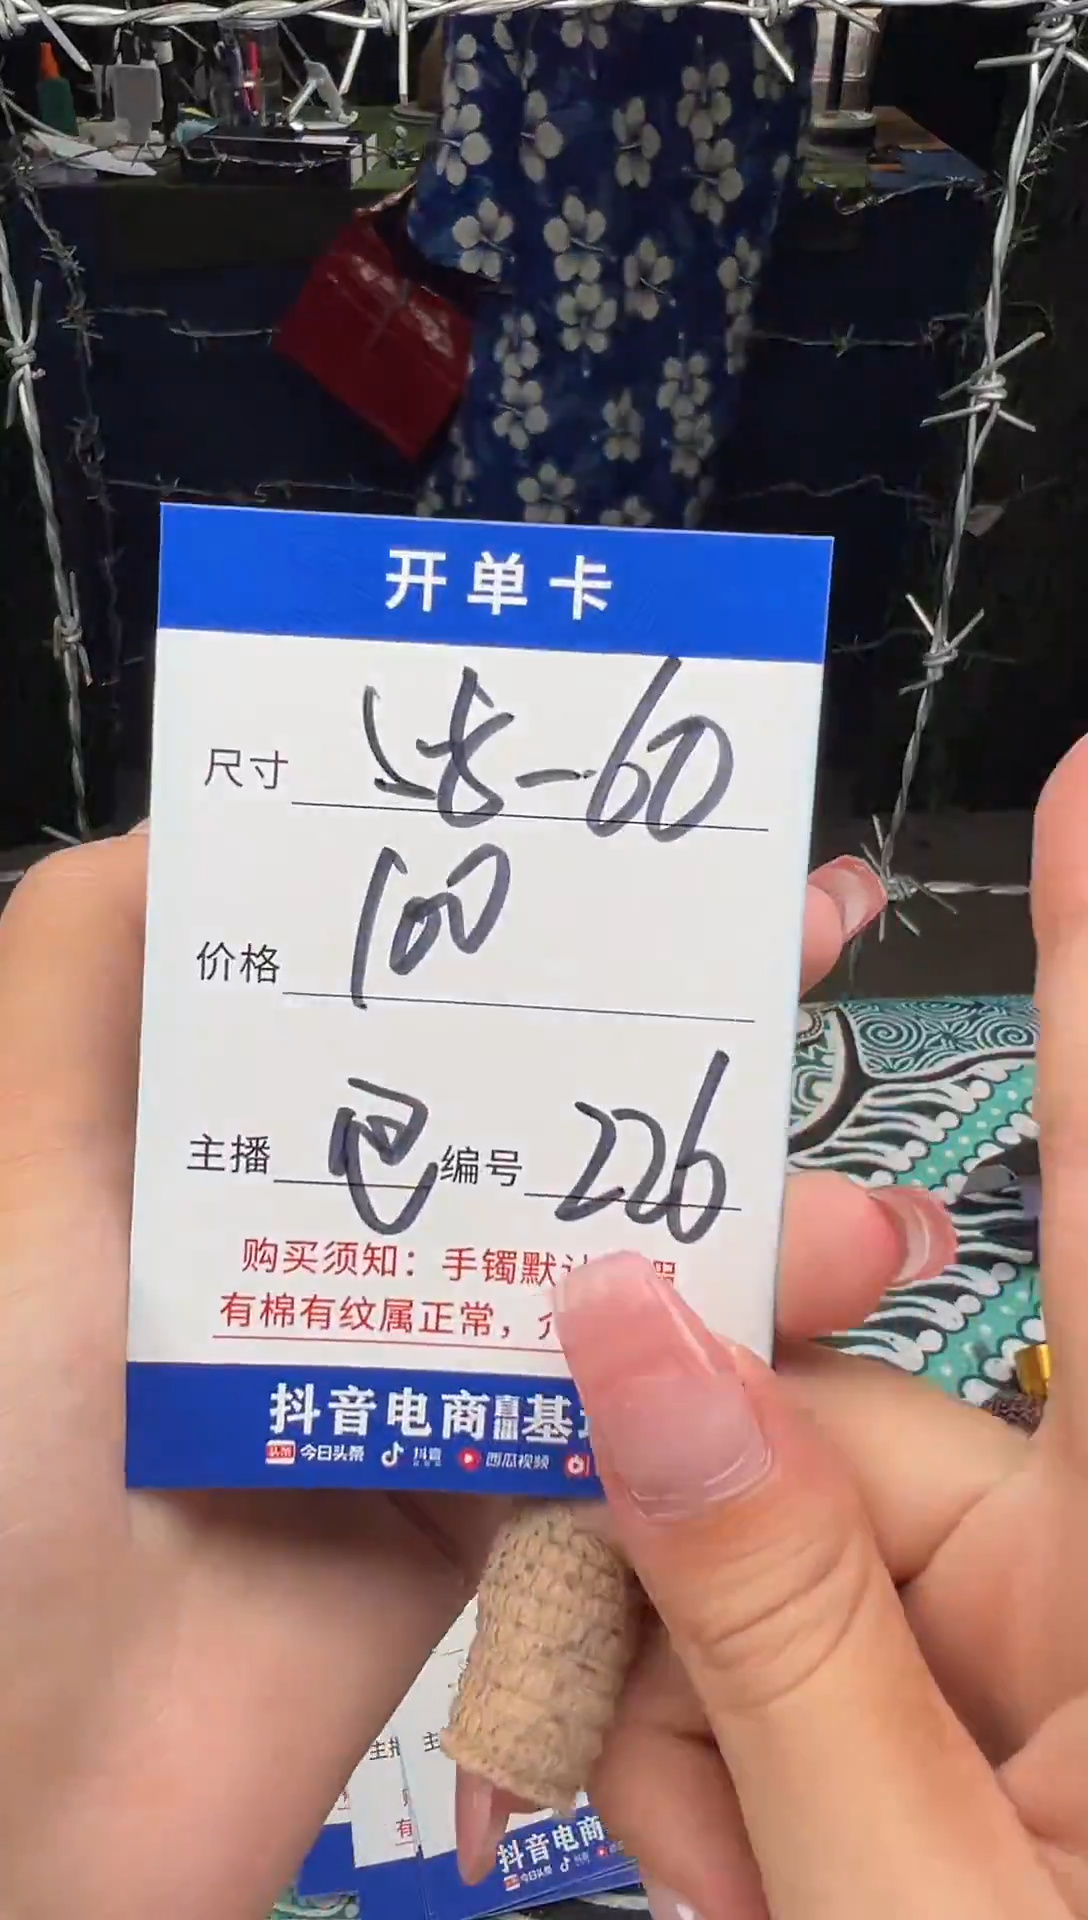 开单卡
尺寸 58-60
价格 100
主播 巴 编号 226
购买须知：手镯默
有棉有纹属正常，
抖音电商直播基
头条 今日头条 抖音 西瓜视频
主播
主
有
抖音电商
今日头条 抖音